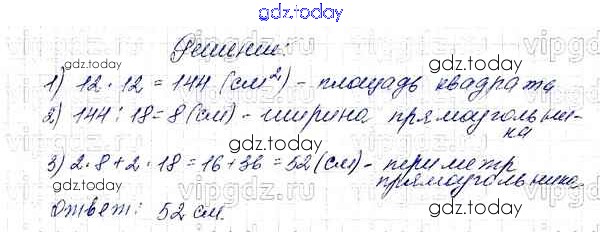 gdz.today
Решение:
1) 12 · 12 = 144 (см²) - площадь квадрата
2) 144 : 18 = 8 (см) - ширина прямоугольни-
ка
3) 2·8+2·18=16+36=52(см)- периметр
прямоугольника.
Ответ: 52 см.
gdz.today
gdz.today
gdz.today
gdz.today
gdz.today
gdz.today